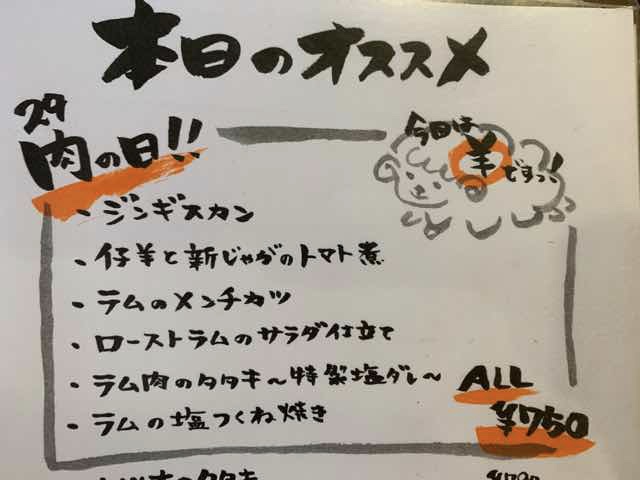 本日のオススメ
29
肉の日!!
今日は
羊
ですっ!
・ジンギスカン
・仔羊と新じゃがのトマト煮
・ラムのメンチカツ
・ローストラムのサラダ仕立て
・ラム肉のタタキ～特製塩ダレ～
・ラムの塩つくね焼き
ALL
¥750